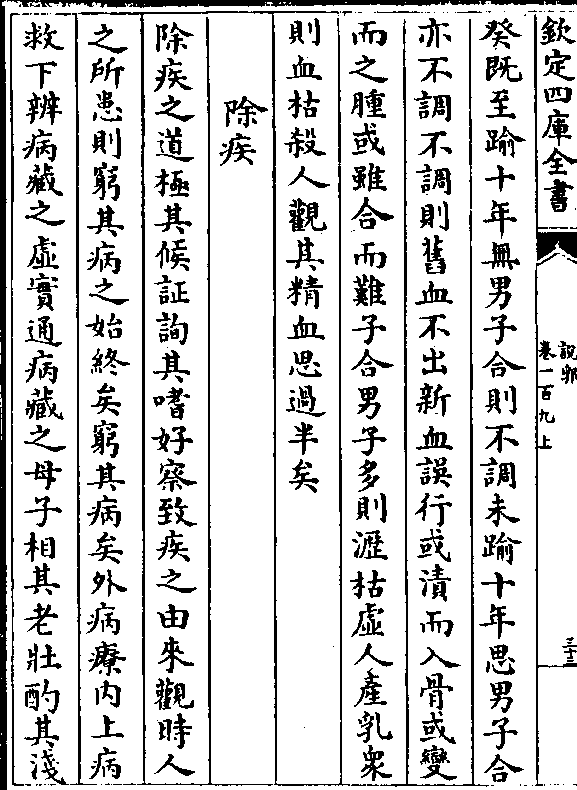 欽定四庫全書
說郛
卷一百九上
三十三
癸既至踰十年無男子合則不調未踰十年思男子合
亦不調不調則舊血不出新血誤行或漬而入骨或變
而之腫或雖合而難子合男子多則瀝枯虛人產乳衆
則血枯殺人觀其精血思過半矣
除疾
除疾之道極其候証詢其嗜好察致疾之由來觀時人
之所患則窮其病之始終矣窮其病矣外病療內上病
救下辨病藏之虛實通病藏之母子相其老壯酌其淺